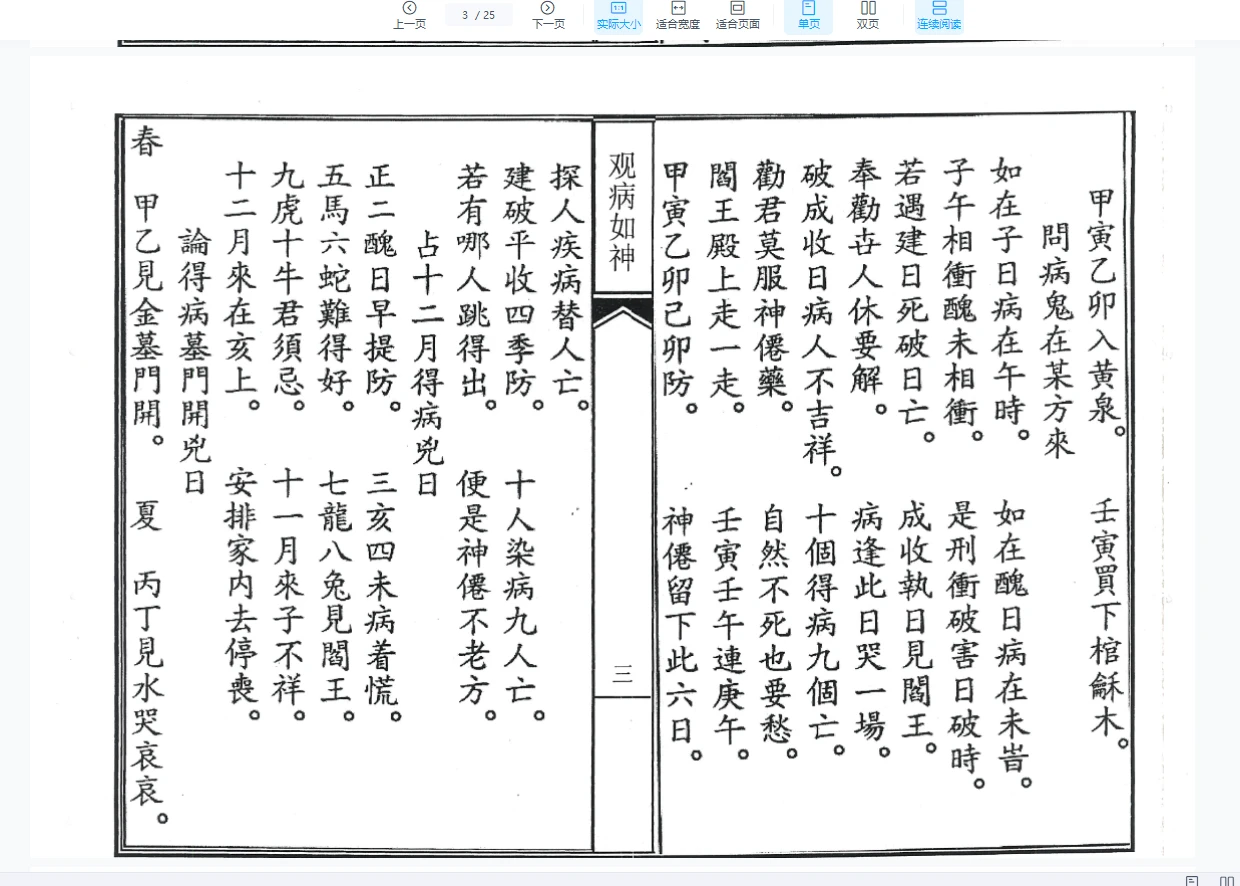 上一页
3 / 25
下一页
实际大小
适合宽度
适合页面
单页
双页
连续阅读
甲寅乙卯入黄泉。 壬寅買下棺龢木。
問病鬼在某方來
如在子日病在午時。 如在醜日病在未旹。
子午相衝醜未相衝。 是刑衝破害日破時。
若遇建日死破日亡。 成收執日見閻王。
奉勸卋人休要解。 病逢此日哭一場。
破成收日病人不吉祥。 十個得病九個亡。
勸君莫服神僊藥。 自然不死也要愁。
閻王殿上走一走。 壬寅壬午連庚午。
甲寅乙卯己卯防。 神僊留下此六日。
观病如神
三
探人疾病替人亡。
建破平收四季防。 十人染病九人亡。
若有哪人跳得出。 便是神僊不老方。
占十二月得病兇日
正二醜日早提防。 三亥四未病着慌。
五馬六蛇難得好。 七龍八兔見閻王。
九虎十牛君須忌。 十一月來子不祥。
十二月來在亥上。 安排家内去停喪。
論得病墓門開兇日
春 甲乙見金墓門開。 夏 丙丁見水哭哀哀。